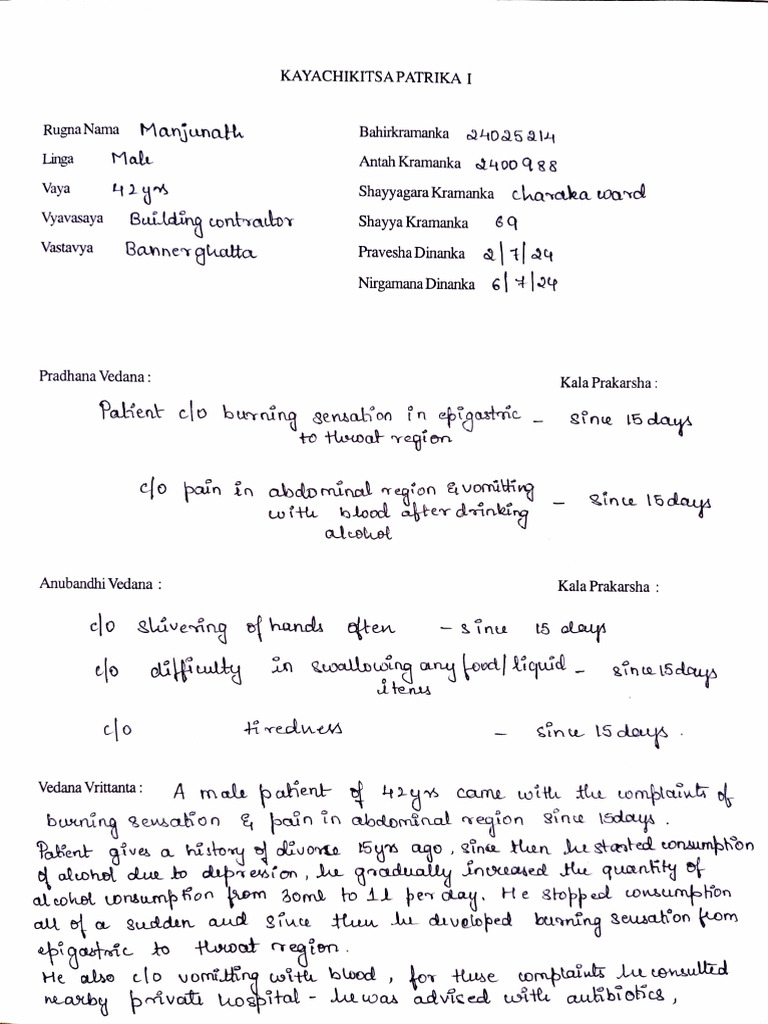 KAYACHIKITSA PATRIKA I
Rugna Nama Manjunath
Bahirkramanka 24025214
Linga Male
Antah Kramanka 2400988
Vaya 42yrs
Shayyagara Kramanka charaka ward
Vyavasaya Building contractor
Shayya Kramanka 69
Vastavya Bannerghatta
Pravesha Dinanka 2/7/24
Nirgamana Dinanka 6/7/24
Pradhana Vedana :
Kala Prakarsha :
Patient c/o burning sensation in epigastric – since 15 days
to throat region
c/o pain in abdominal region & vomitting – since 15days
with blood after drinking
alcohol
Anubandhi Vedana :
Kala Prakarsha :
c/o shivering of hands often – since 15 days
c/o difficulty in swallowing any food/liquid – since 15days
items
c/o tiredness – since 15days .
Vedana Vrittanta : A male patient of 42yrs came with the complaints of
burning sensation & pain in abdominal region since 15days .
Patient gives a history of divorce 15yrs ago , since then he started consumption
of alcohol due to depression , he gradually increased the quantity of
alcohol consumption from 30ml to 1l per day. He stopped consumption
all of a sudden and since then he developed burning sensation from
epigastric to throat region .
He also c/o vomitting with blood , for these complaints he consulted
nearby private hospital - he was advised with antibiotics ,